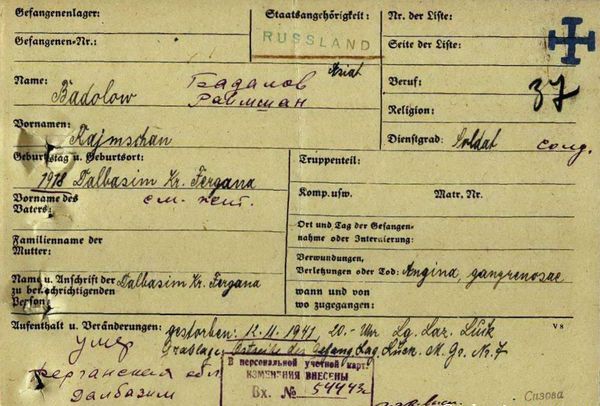 Gefangenenlager:
Gefangenen-Nr.:
Staatsangehörigkeit:
RUSSLAND
Asiat
Nr. der Liste:
Seite der Liste:
Name:
Badolow
Бадалов
Раймшан
Beruf:
37
Religion:
Vornamen:
Rajmschan
Dienstgrad: Soldat
солд.
Geburtstag u. Geburtsort:
1918 Dalbasim Kr. Fergana
Truppenteil:
Vorname des
Vaters:
Komp. usw.
Matr. Nr.
Familienname der
Mutter:
Ort und Tag der Gefangen-
nahme oder Internierung:
Name u. Anschrift der
zu benachrichtigenden
Person:
Dalbasim Kr. Fergana
Verwundungen,
Verletzungen oder Tod: Angina, gangrenosae
wann und von
wo zugegangen:
Aufenthalt u. Veränderungen: gestorben: 12.11.1941 20.- Uhr Lg. Laz. Luck
V 8
умер
Grablage: Ostseite des Gefang. Lag. Luck. M. Gr. Nr. 7
Ферганская обл
Далбазим
В персональной учетной карт.
ИЗМЕНЕНИЯ ВНЕСЕНЫ
Вх. №
Сизова